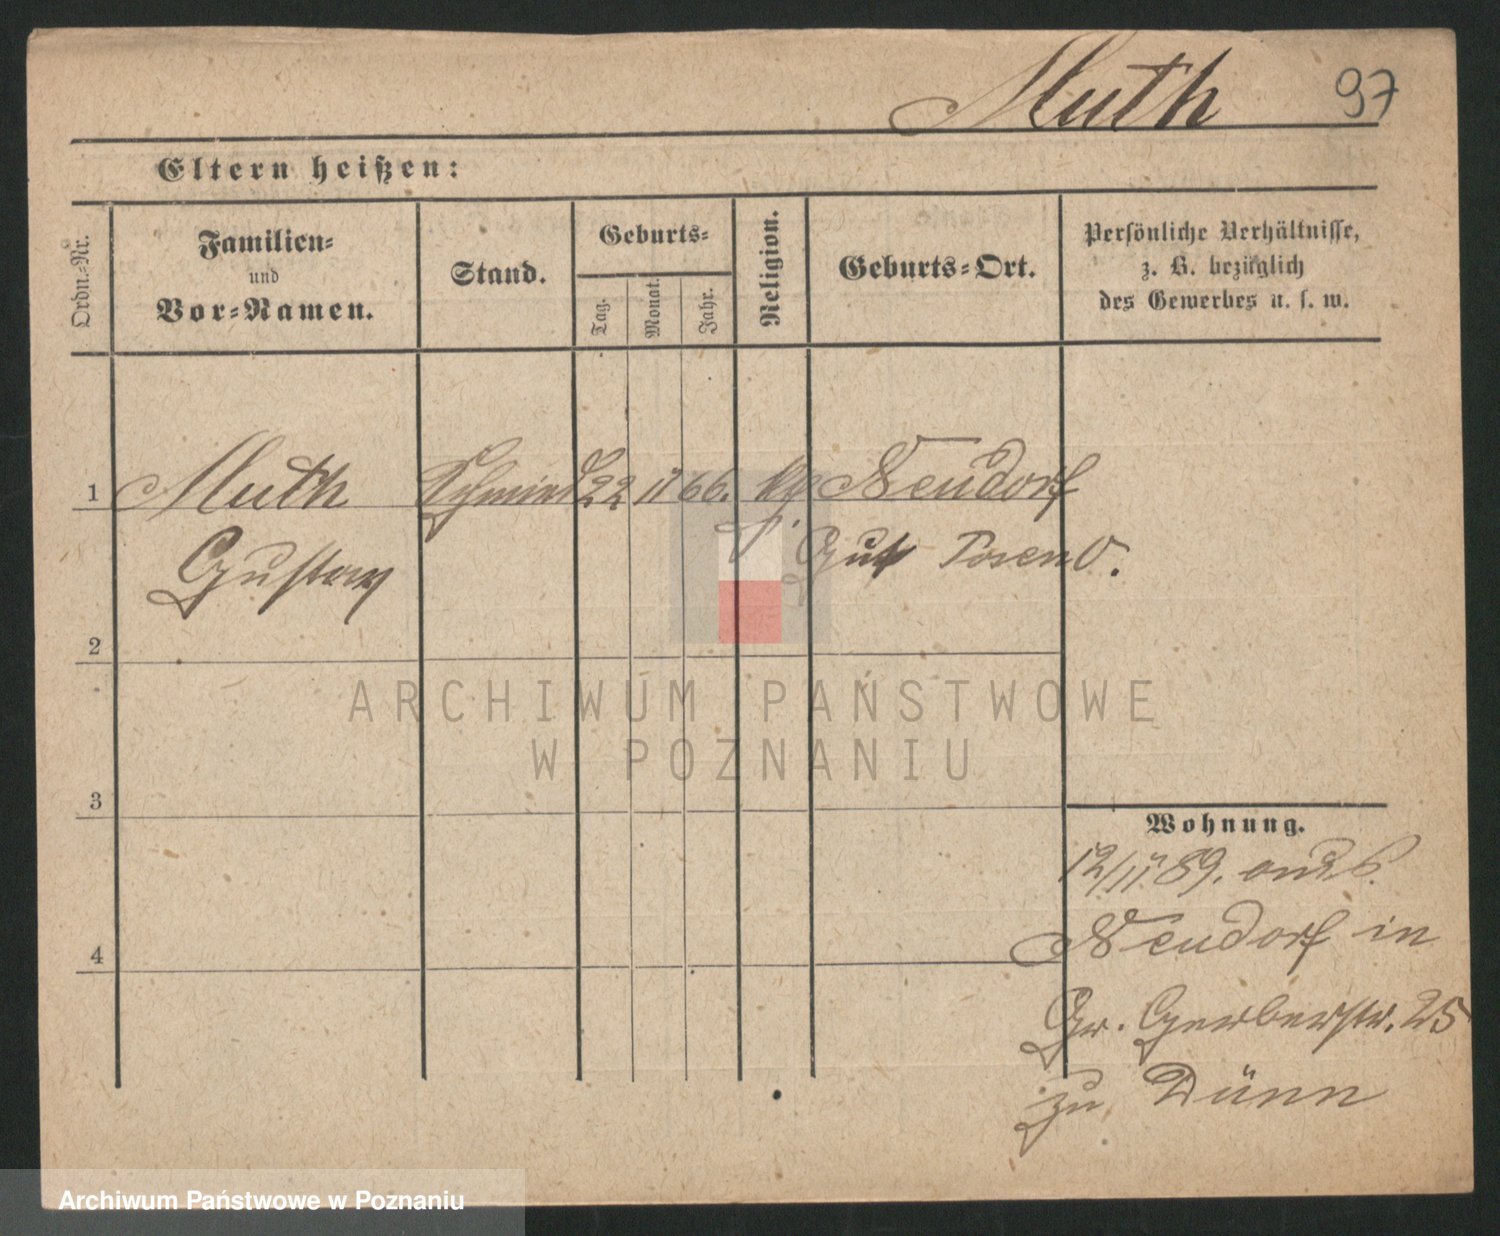 Muth 97
Eltern heißen:
Ordn.-Nr.
Familien-
und
Vor-Namen.
Stand.
Geburts-
Tag.
Monat.
Jahr.
Religion.
Geburts-Ort.
Persönliche Verhältnisse,
z. B. bezüglich
des Gewerbes u. s. w.
1 Muth Schmied 22 11 66. Neudorf
Gustav Gut Posen O.
2
3
4
Wohnung.
12/11 89.
Neudorf in
Gr. Gerberstr. 25
zu Dünn
ARCHIWUM PAŃSTWOWE
W POZNANIU
Archiwum Państwowe w Poznaniu